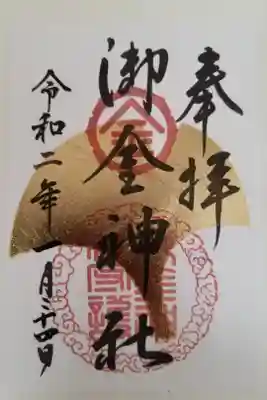 奉拝
御金神社
令和二年一月二十四日